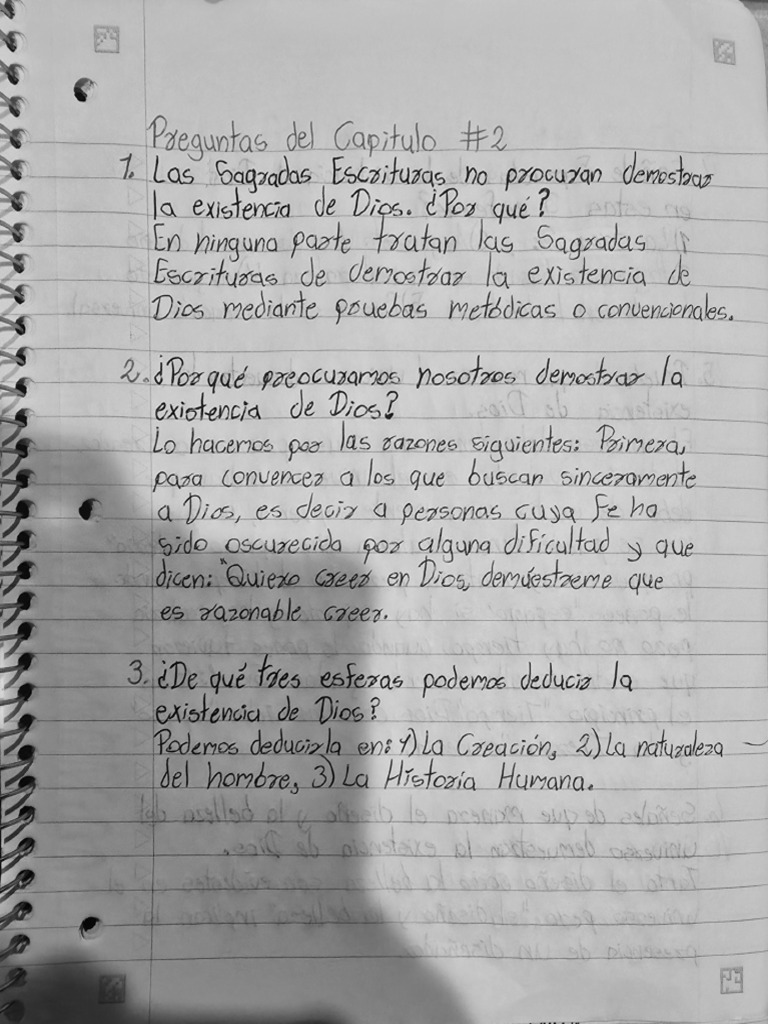 Preguntas del Capitulo #2
1. Las Sagradas Escrituras no procuran demostrar
la existencia de Dios. ¿Por qué?
En ninguna parte tratan las Sagradas
Escrituras de demostrar la existencia de
Dios mediante pruebas metódicas o convencionales.
2. ¿Por qué preocuramos nosotros demostrar la
existencia de Dios?
Lo hacemos por las razones siguientes: Primera,
para convencer a los que buscan sinceramente
a Dios, es decir a personas cuya fe ha
sido oscurecida por alguna dificultad y que
dicen: "Quiero creer en Dios, demuéstreme que
es razonable creer.
3. ¿De qué tres esferas podemos deducir la
existencia de Dios?
Podemos deducirla en: 1) La Creación, 2) La naturaleza
del hombre, 3) La Historia Humana.